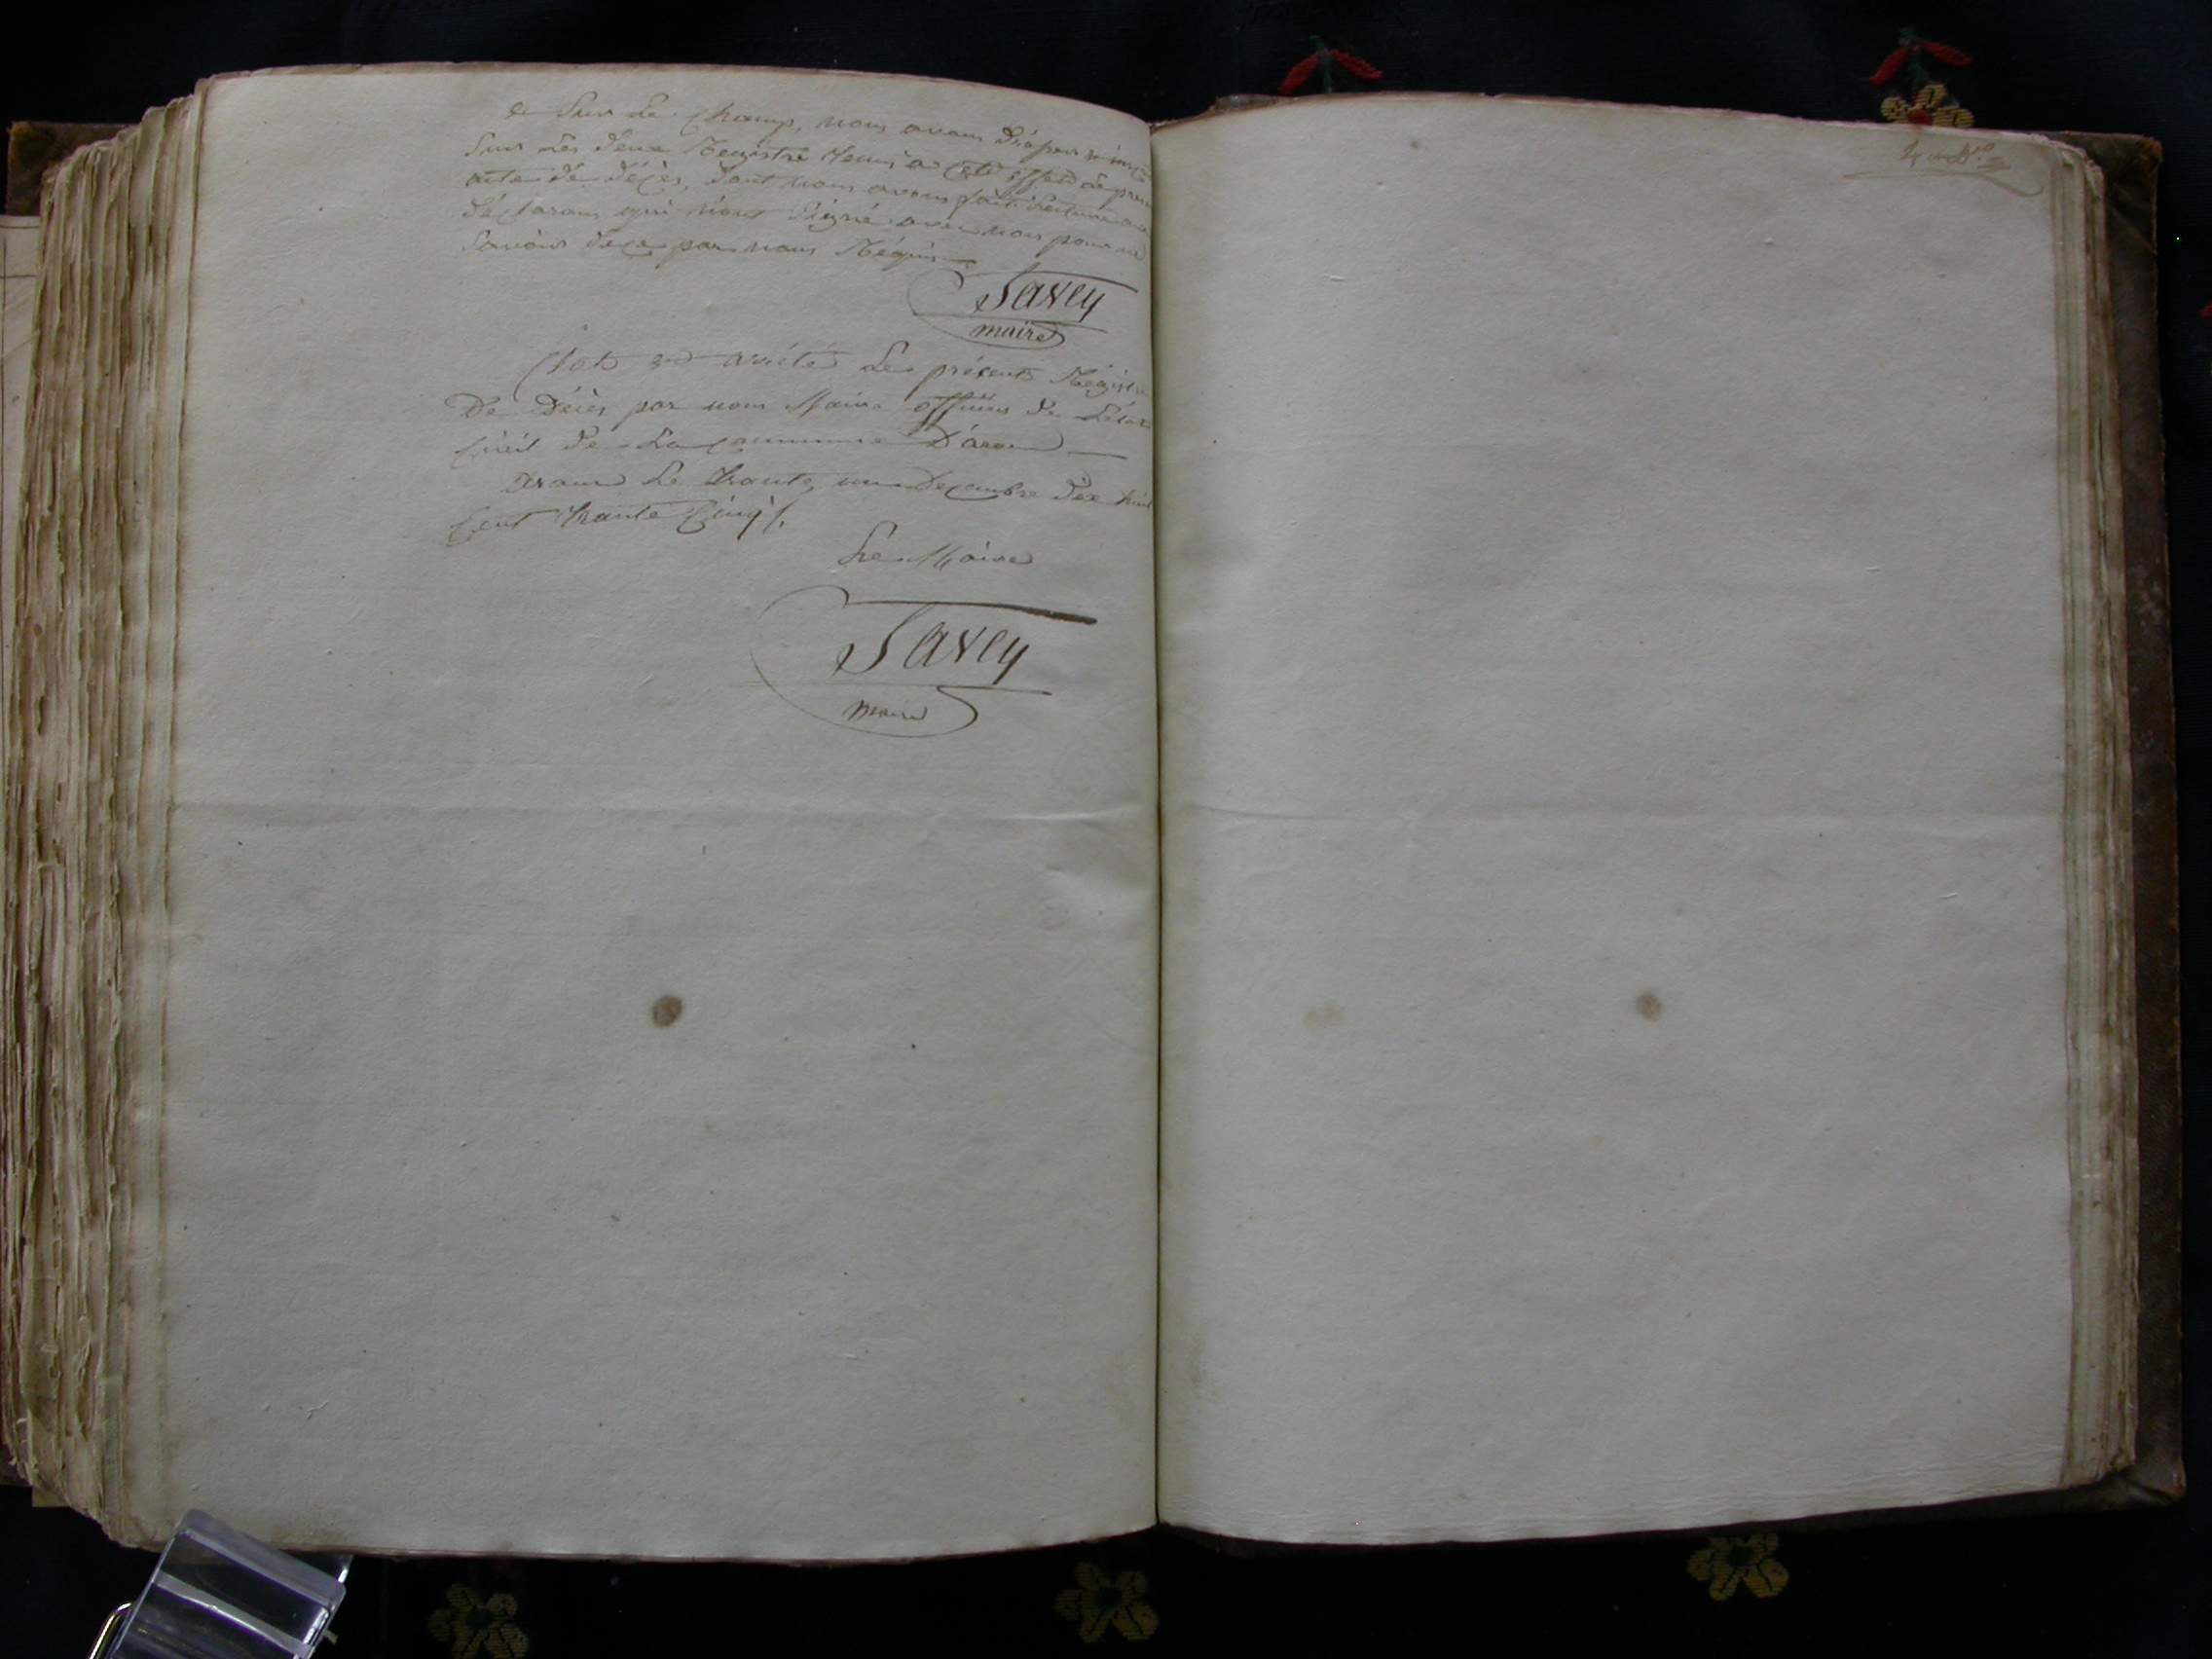 et Sur Le Champ, nous avons
Sur Les deux Registre tenus a Cet effet Le
acte de décès, dont nous avons fait Lecture au
déclarans qui n'ont Signé avec nous pour ne
Savoir de ce par nous Réquis
Savey
maire
Clot et arrêté Le présent Régistre
De Décès par nous Maire officier de L'état
Civil de La Commune
Le trante un Decembre dix huit
Cent trante Cinq
Le Maire
Savey
maire